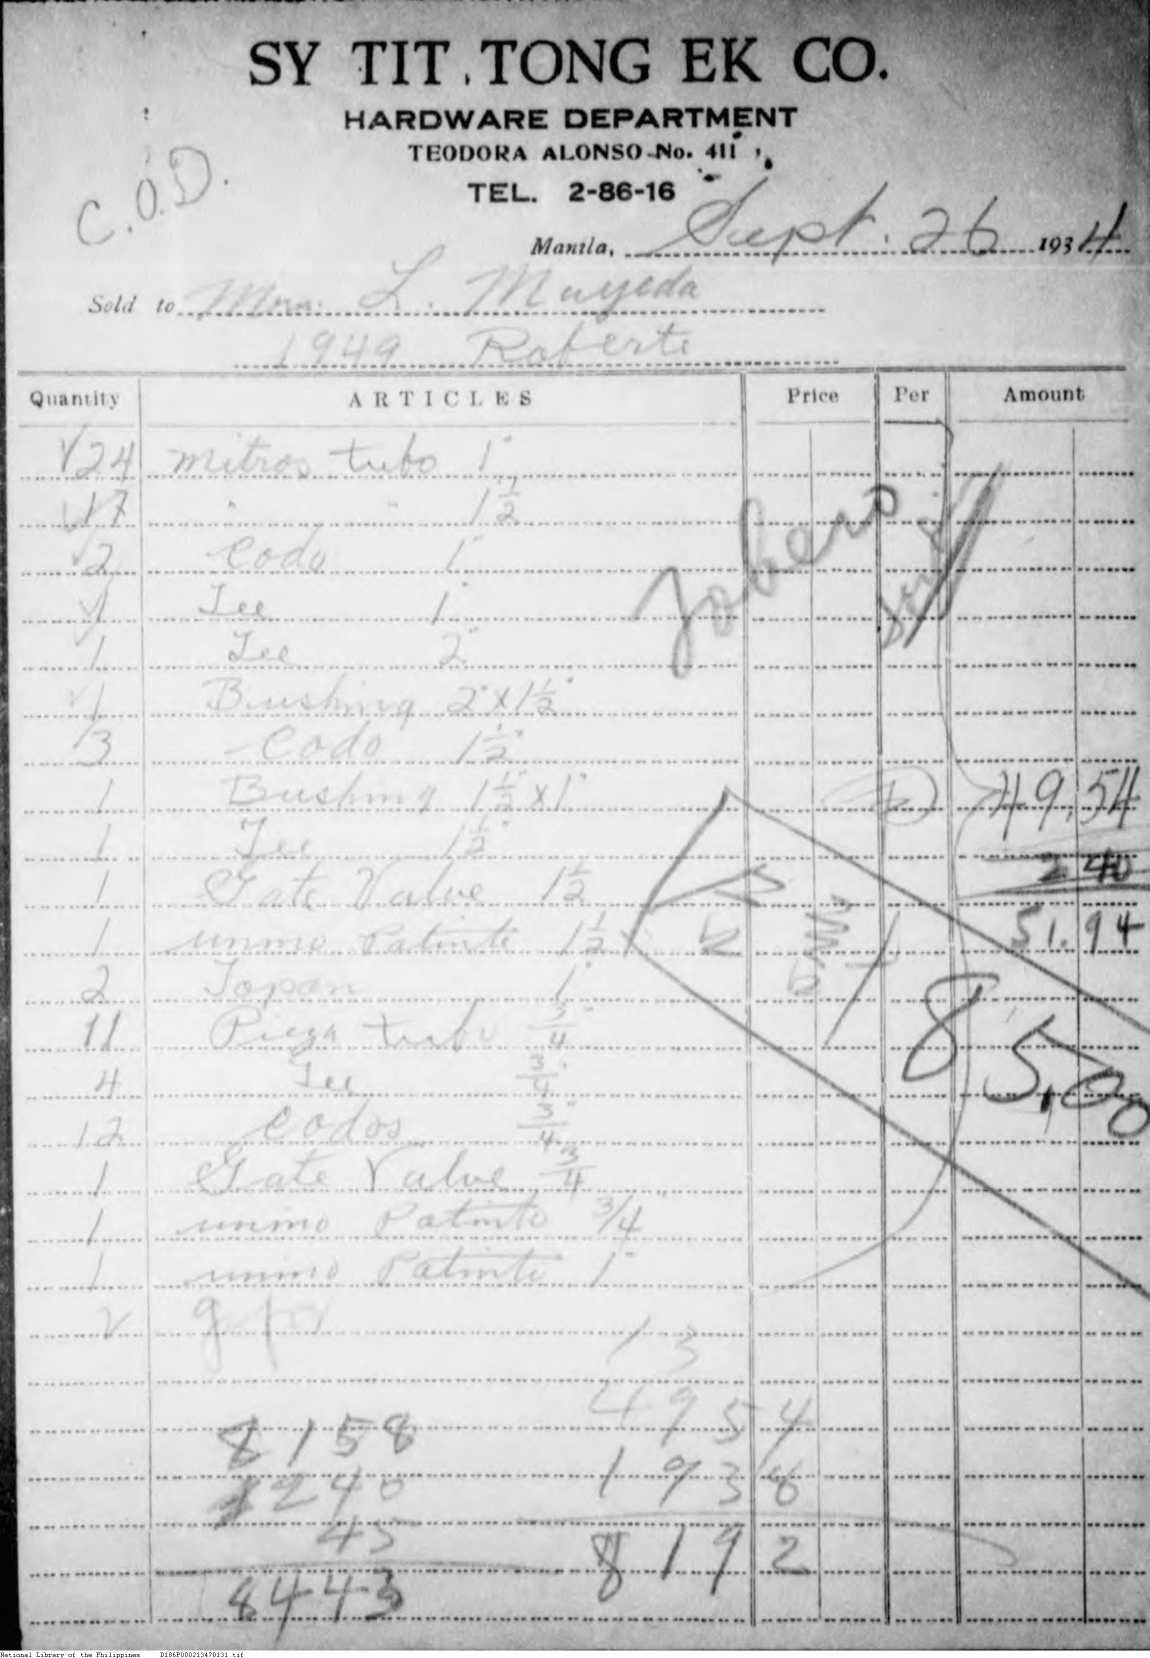 SY TIT TONG EK CO.
HARDWARE DEPARTMENT
TEODORA ALONSO No. 411
TEL. 2-86-16
C.O.D.
Manila, Sept. 26 1934
Sold to Mrs. L. Muyeda
1949 Roberts
Quantity ARTICLES Price Per Amount
24 mitros tubo 1"
17 " " 1 1/2"
2 Codo 1"
1 Tee 1"
1 Tee 2"
1 Bushing 2" x 1 1/2"
3 Codo 1 1/2"
1 Bushing 1 1/2" x 1" 49.54
1 Tee 1 1/2" 2 40
1 Gate Valve 1 1/2
1 unino Patinte 1 1/2" 51.94
2 Tapon 1"
11 Pieza tubo 3/4" 85.00
4 Tee 3/4"
12 Codos 3/4"
1 Gate Valve 3/4
1 unino Patinte 3/4
1 unino Patinte 1"
2
13
8158 4954
240 1938
45 8192
8443
National Library of the Philippines D186P000213470131.tif